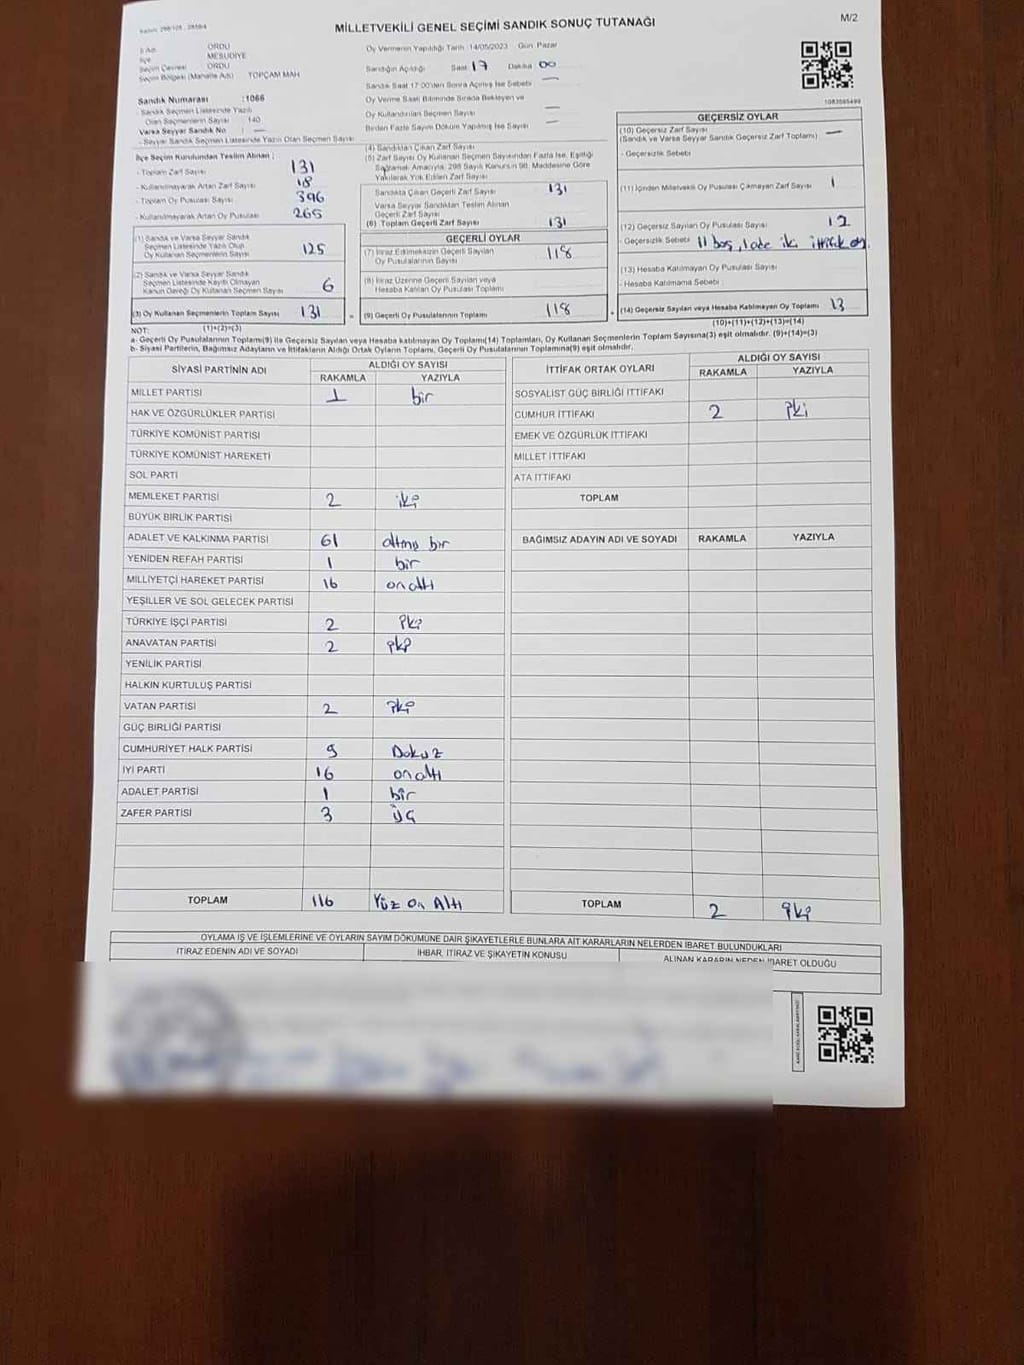 MİLLETVEKİLİ GENEL SEÇİMİ SANDIK SONUÇ TUTANAĞI
M/2
ORDU
İlçe MESUDİYE
Seçim Çevresi ORDU
Seçim Bölgesi (Mahalle Adı) TOPÇAM MAH
Sandık Numarası :1066
- Sandık Seçmen Listesinde Yazılı
Olan Seçmenlerin Sayısı 140
Varsa Seyyar Sandık No : —
- Seyyar Sandık Seçmen Listesinde Yazılı Olan Seçmen Sayısı
İlçe Seçim Kurulundan Teslim Alınan ;
- Toplam Zarf Sayısı 131
- Kullanılmayarak Artan Zarf Sayısı 18
- Toplam Oy Pusulası Sayısı 396
- Kullanılmayarak Artan Oy Pusulası 265
(1) Sandık ve Varsa Seyyar Sandık
Seçmen Listesinde Yazılı Olup
Oy Kullanan Seçmenlerin Sayısı 125
(2) Sandık ve Varsa Seyyar Sandık
Seçmen Listesinde Kayıtlı Olmayan
Kanun Gereği Oy Kullanan Seçmen Sayısı 6
(3) Oy Kullanan Seçmenlerin Toplam Sayısı 131
(1)+(2)=(3)
Oy Vermenin Yapıldığı Tarih :14/05/2023 Gün Pazar
Sandığın Açıldığı Saat 17 Dakika 00
Sandık Saat 17:00'den Sonra Açılmış İse Sebebi —
Oy Verme Saati Bitiminde Sırada Bekleyen ve
Oy Kullandırılan Seçmen Sayısı —
Birden Fazla Sayım Döküm Yapılmış İse Sayısı —
(4) Sandıktan Çıkan Zarf Sayısı
(5) Zarf Sayısı Oy Kullanan Seçmen Sayısından Fazla İse, Eşitliği
Sağlamak Amacıyla, 298 Sayılı Kanunun 98. Maddesine Göre
Yakılarak Yok Edilen Zarf Sayısı
Sandıkta Çıkan Geçerli Zarf Sayısı 131
Varsa Seyyar Sandıktan Teslim Alınan
Geçerli Zarf Sayısı
(6) Toplam Geçerli Zarf Sayısı 131
GEÇERLİ OYLAR
(7) İtiraz Edilmeksizin Geçerli Sayılan
Oy Pusulalarının Sayısı 118
(8) İtiraz Üzerine Geçerli Sayılan veya
Hesaba Katılan Oy Pusulası Toplamı
(9) Geçerli Oy Pusulalarının Toplamı 118
1083565499
GEÇERSİZ OYLAR
(10) Geçersiz Zarf Sayısı
(Sandık ve Varsa Seyyar Sandık Geçersiz Zarf Toplamı) —
- Geçersizlik Sebebi
(11) İçinden Milletvekili Oy Pusulası Çıkmayan Zarf Sayısı 1
(12) Geçersiz Sayılan Oy Pusulası Sayısı 12
- Geçersizlik Sebebi 11 boş, 1 ade iki ittifak oy.
(13) Hesaba Katılmayan Oy Pusulası Sayısı
- Hesaba Katılmama Sebebi :
(14) Geçersiz Sayılan veya Hesaba Katılmayan Oy Toplamı 13
(10)+(11)+(12)+(13)=(14)
NOT:
a- Geçerli Oy Pusulalarının Toplamı(9) ile Geçersiz Sayılan veya Hesaba katılmayan Oy Toplamı(14) Toplamları, Oy Kullanan Seçmenlerin Toplam Sayısına(3) eşit olmalıdır. (9)+(14)=(3)
b- Siyasi Partilerin, Bağımsız Adayların ve İttifakların Aldığı Ortak Oyların Toplamı, Geçerli Oy Pusulalarının Toplamına(9) eşit olmalıdır.
SİYASİ PARTİNİN ADI ALDIĞI OY SAYISI
RAKAMLA YAZIYLA
MİLLET PARTİSİ 1 bir
HAK VE ÖZGÜRLÜKLER PARTİSİ
TÜRKİYE KOMÜNİST PARTİSİ
TÜRKİYE KOMÜNİST HAREKETİ
SOL PARTİ
MEMLEKET PARTİSİ 2 iki
BÜYÜK BİRLİK PARTİSİ
ADALET VE KALKINMA PARTİSİ 61 altmış bir
YENİDEN REFAH PARTİSİ 1 bir
MİLLİYETÇİ HAREKET PARTİSİ 16 on altı
YEŞİLLER VE SOL GELECEK PARTİSİ
TÜRKİYE İŞÇİ PARTİSİ 2 iki
ANAVATAN PARTİSİ 2 iki
YENİLİK PARTİSİ
HALKIN KURTULUŞ PARTİSİ
VATAN PARTİSİ 2 iki
GÜÇ BİRLİĞİ PARTİSİ
CUMHURİYET HALK PARTİSİ 9 Dokuz
İYİ PARTİ 16 on altı
ADALET PARTİSİ 1 bir
ZAFER PARTİSİ 3 üç
TOPLAM 116 Yüz On Altı
İTTİFAK ORTAK OYLARI ALDIĞI OY SAYISI
RAKAMLA YAZIYLA
SOSYALİST GÜÇ BİRLİĞİ İTTİFAKI
CUMHUR İTTİFAKI 2 iki
EMEK VE ÖZGÜRLÜK İTTİFAKI
MİLLET İTTİFAKI
ATA İTTİFAKI
TOPLAM
BAĞIMSIZ ADAYIN ADI VE SOYADI RAKAMLA YAZIYLA
TOPLAM 2 iki
OYLAMA İŞ VE İŞLEMLERİNE VE OYLARIN SAYIM DÖKÜMÜNE DAİR ŞİKAYETLERLE BUNLARA AİT KARARLARIN NELERDEN İBARET BULUNDUKLARI
İTİRAZ EDENİN ADI VE SOYADI İHBAR, İTİRAZ VE ŞİKAYETİN KONUSU ALINAN KARARIN NEDEN İBARET OLDUĞU